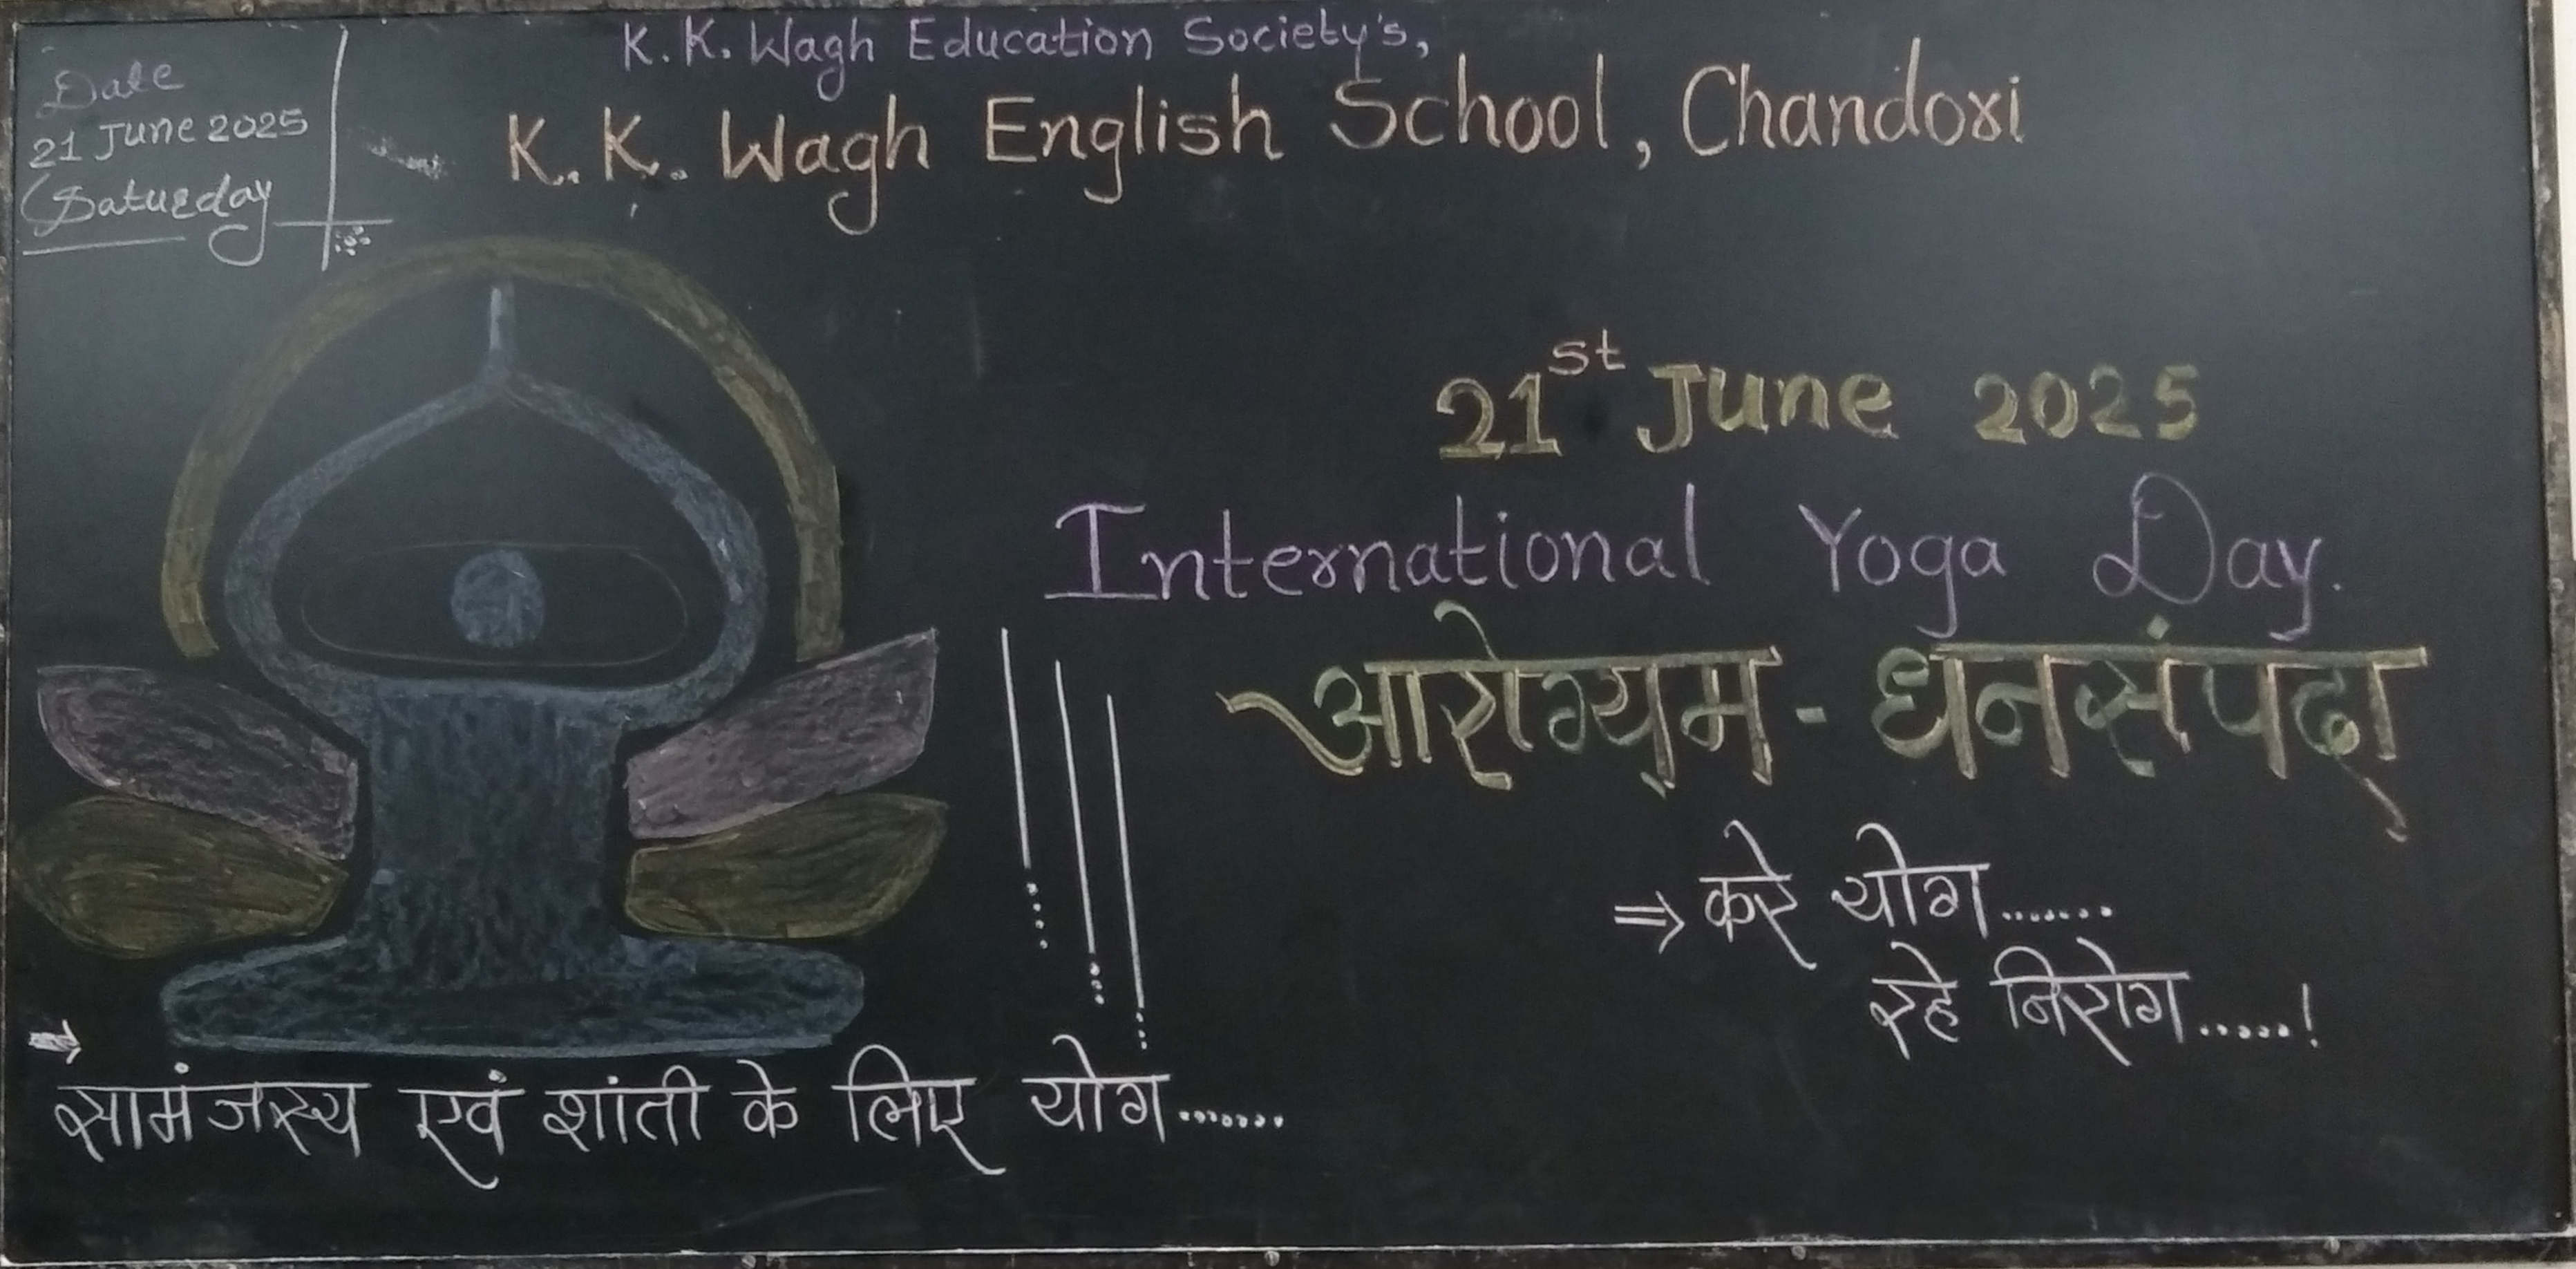 K. K. Wagh Education Society's,
K. K. Wagh English School, Chandori
Date
21 June 2025
Saturday
21st June 2025
International Yoga Day.
आरोग्यम - धनसंपदा
⇒ करे योग.......
रहे निरोग.....!
→
सामंजस्य एवं शांती के लिए योग.......